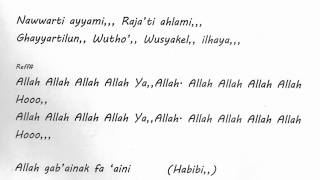 Nawwarti ayyami,,, Raja’ti ahlami,,,
Ghayyartilun,, Wutho’,, Wusyakel,, ilhaya,,,
Reff#
Allah Allah Allah Allah Ya,,Allah. Allah Allah Allah Allah
Hooo,,
Allah Allah Allah Allah Ya,,Allah. Allah Allah Allah Allah
Hooo,,,
Allah gab’ainak fa ‘aini (Habibi,,)